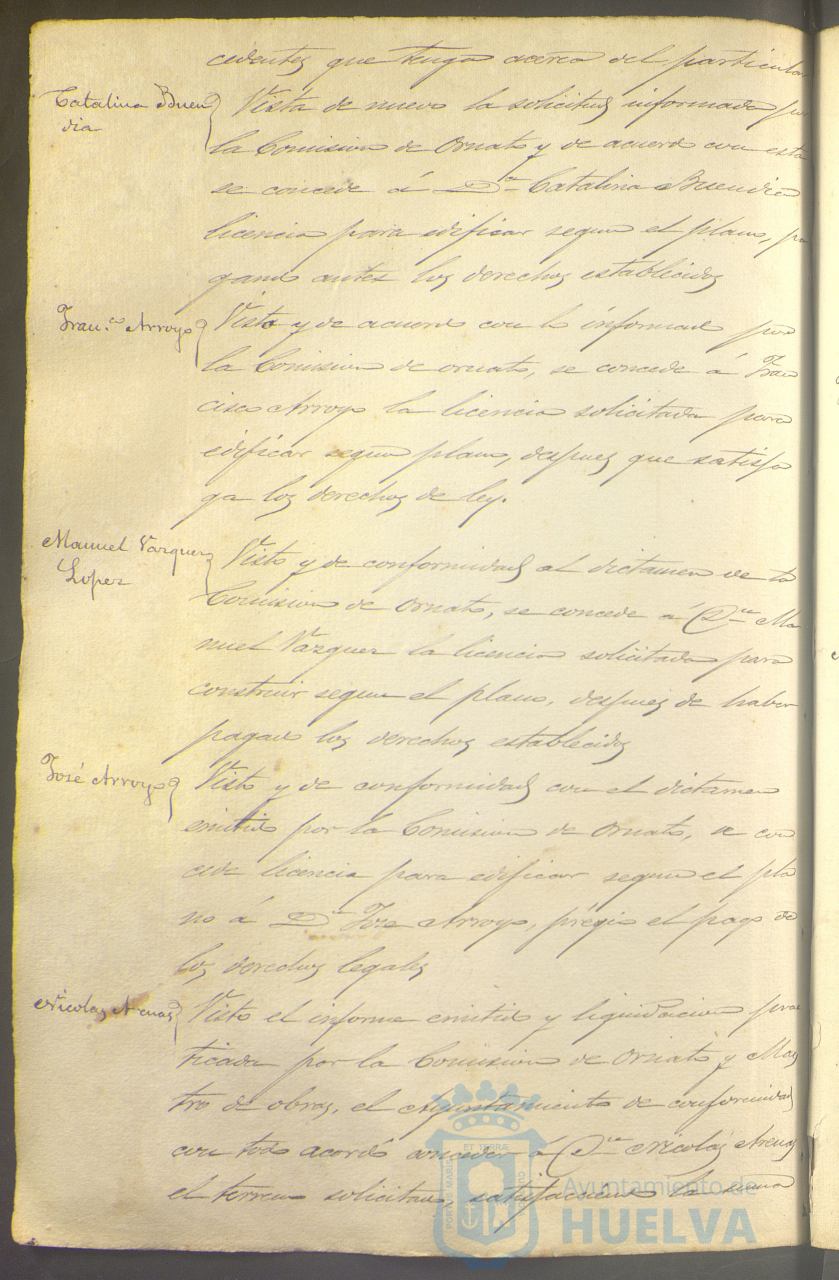 cedentes que tenga acerca del particular
Catalina Buen
dia
Vista de nuevo la solicitud informada por
la Comision de Ornato y de acuerdo con esta
se concede á Dª Catalina Buendia
licencia para edificar segun el plano, pa
gando antes los derechos establecidos
Fran.co Arroyo
Visto y de acuerdo con lo informado por
la Comision de ornato, se concede á Fran
cisco Arroyo la licencia solicitada para
edificar segun plano, despues que satisfa
ga los derechos de ley.
Manuel Vazquez
Lopez
Visto y de conformidad al dictamen de la
Comision de Ornato, se concede á Dn Ma
nuel Vazquez la licencia solicitada para
construir segun el plano, despues de haber
pagado los derechos establecidos
José Arroyo
Visto y de conformidad con el dictamen
emitido por la Comision de Ornato, se con
cede licencia para edificar segun el pla
no á Dn José Arroyo, prévio el pago de
los derechos legales
Nicolas Arenas
Visto el informe emitido y liquidacion prac
ticada por la Comision de Ornato y Maes
tro de obras, el Ayuntamiento de conformidad
con todo acordó conceder á Dn Nicolas Arenas
el terreno solicitado, satisfaciendo la suma
ET TERRÆ
PORTUS MARIS
Ayuntamiento de
HUELVA